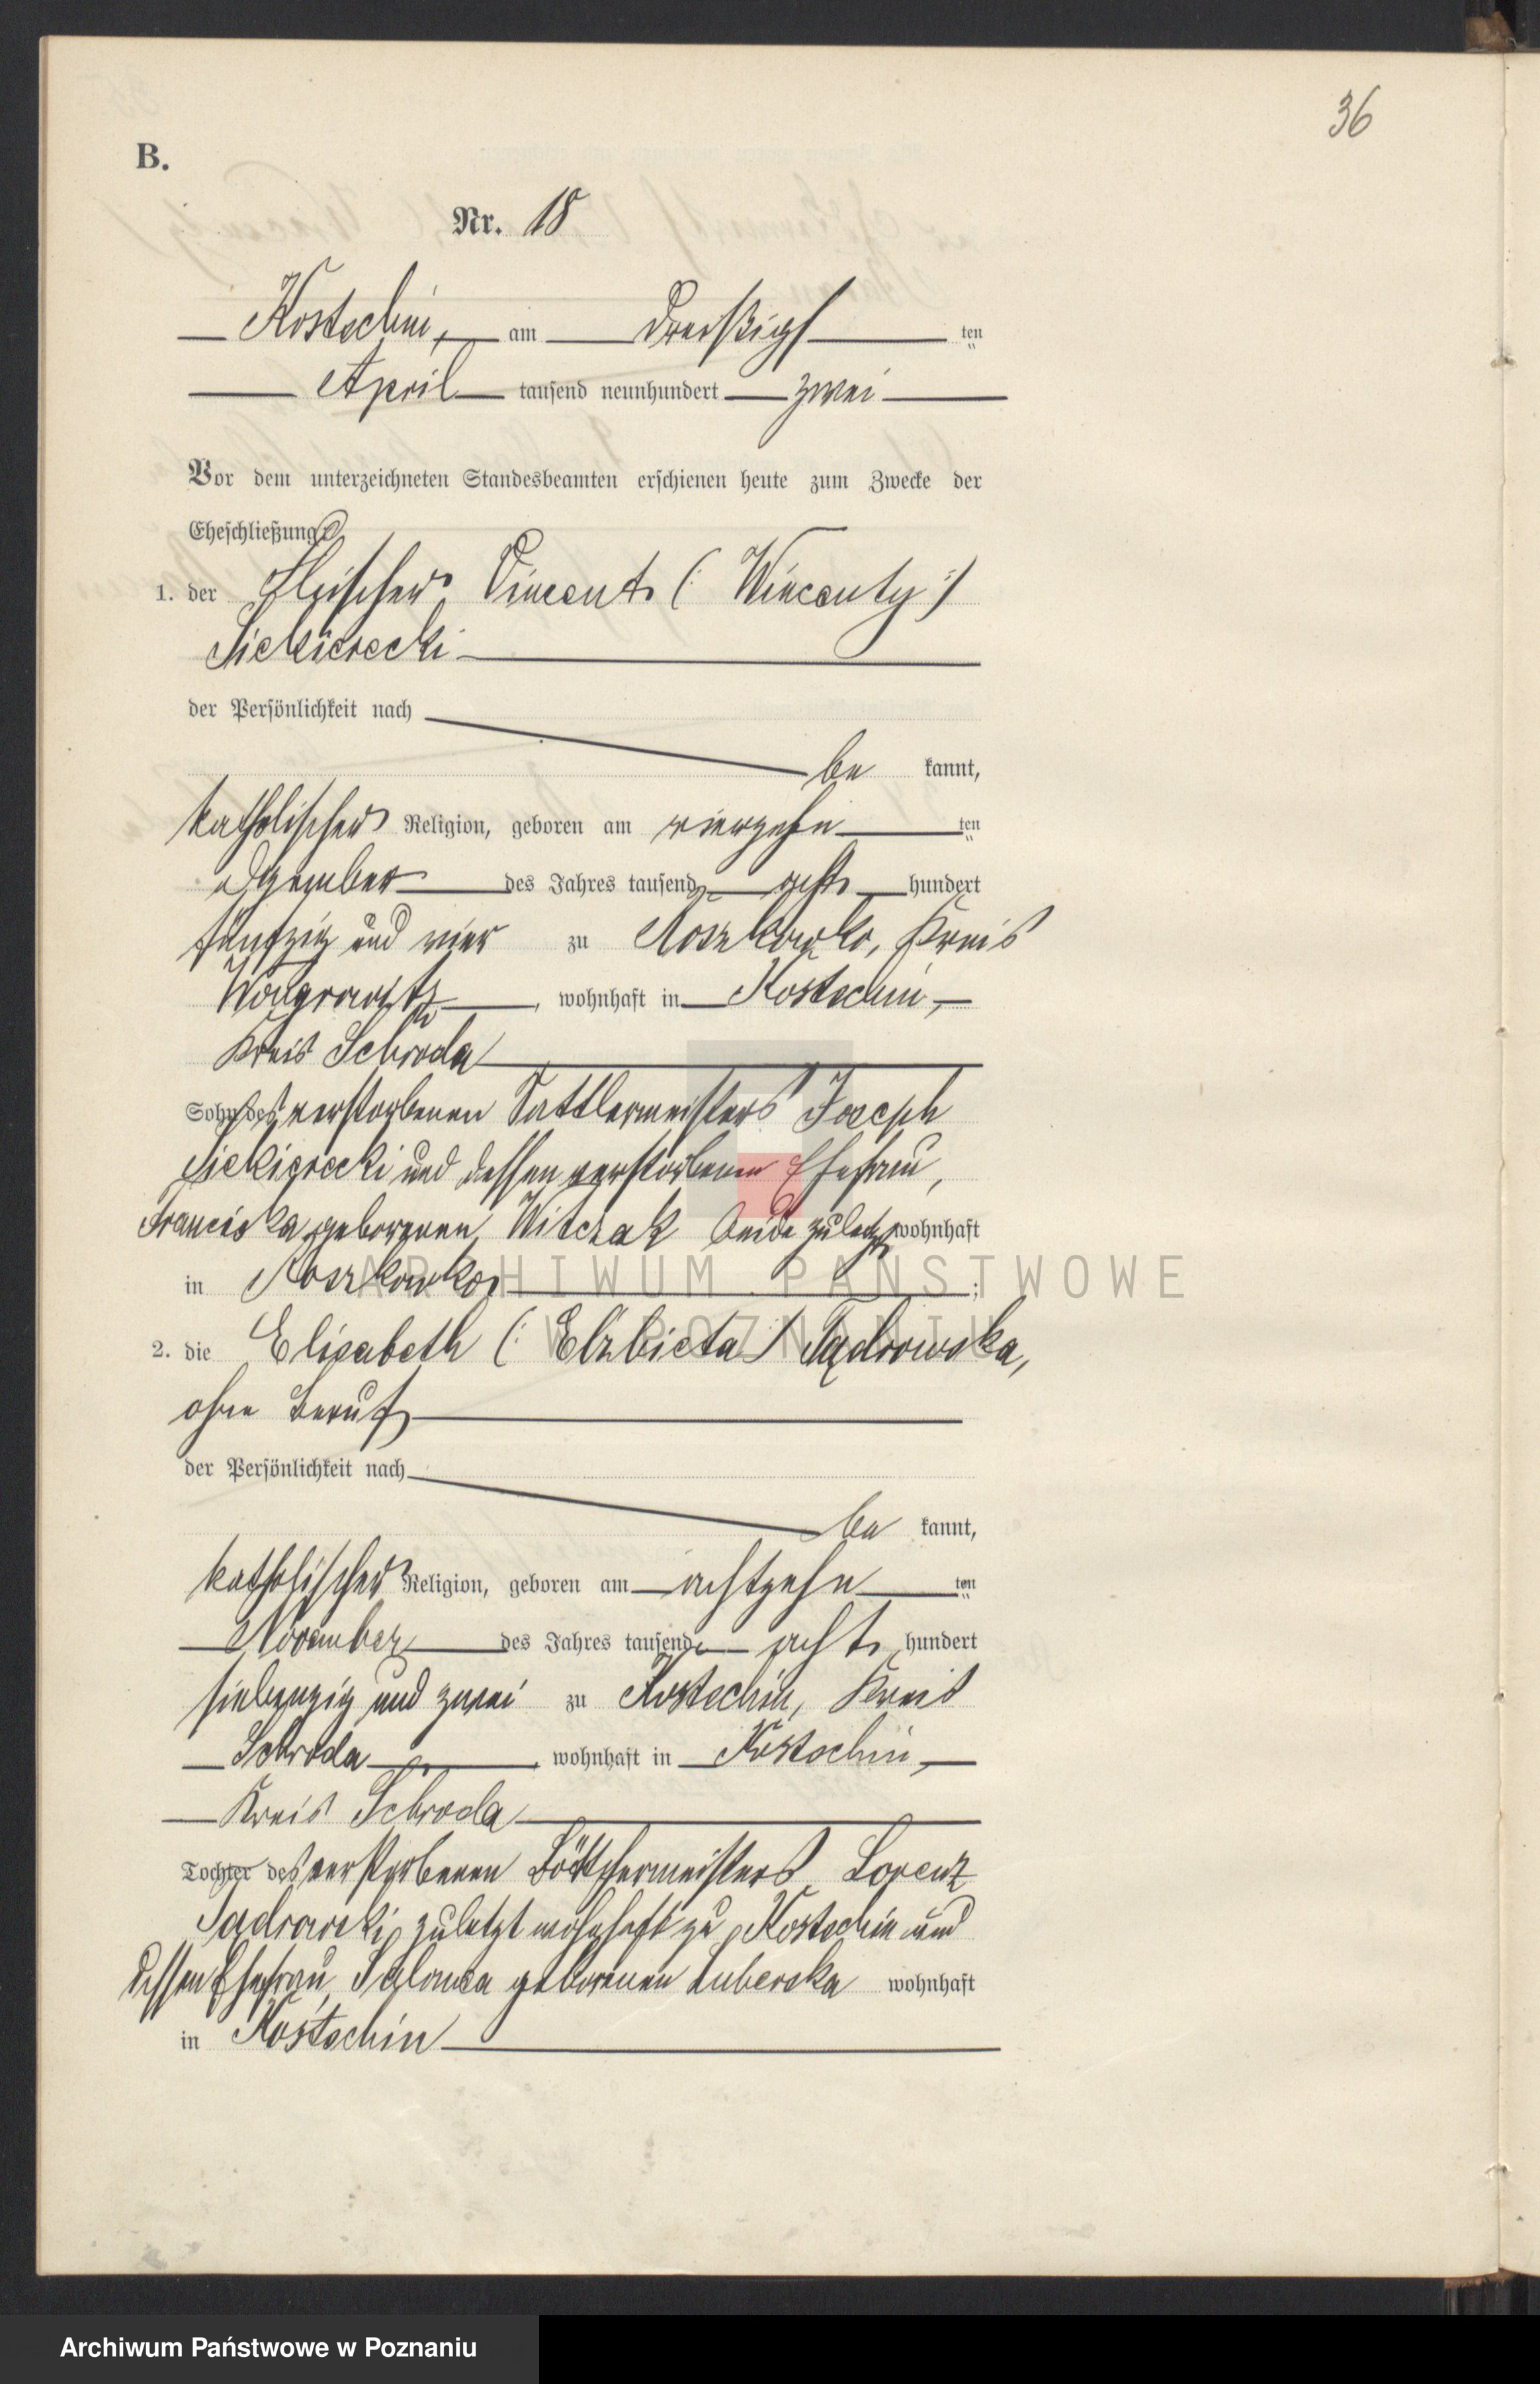 36
B.
Nr. 18
Kostschin, am Dreißigsten
April tausend neunhundert zwei
Vor dem unterzeichneten Standesbeamten erschienen heute zum Zwecke der
Eheschließung:
1. der Fleischer Vincent (: Wincenty :)
Siekierecki
der Persönlichkeit nach
be kannt,
katholischer Religion, geboren am vierzehn ten
Dezember des Jahres tausend acht hundert
fünfzig und vier zu Roszkowko, Kreis
Wongrowitz, wohnhaft in Kostschin,
Kreis Schroda
Sohn des verstorbenen Sattlermeisters Joseph
Siekierecki und dessen verstorbenen Ehefrau,
Franciska geborenen Witczak beide zuletzt wohnhaft
in Roszkowko ;
2. die Elisabeth (: Elżbieta :) Sądrowska,
ohne Beruf
der Persönlichkeit nach
be kannt,
katholischer Religion, geboren am achtzehn ten
November des Jahres tausend acht hundert
siebenzig und zwei zu Kostschin, Kreis
Schroda, wohnhaft in Kostschin,
Kreis Schroda
Tochter des verstorbenen Böttchermeisters Lorenz
Sądrowski, zuletzt wohnhaft zu Kostschin und
dessen Ehefrau, Salomea geborenen Luberska wohnhaft
in Kostschin
ARCHIWUM PAŃSTWOWE
W POZNANIU
Archiwum Państwowe w Poznaniu